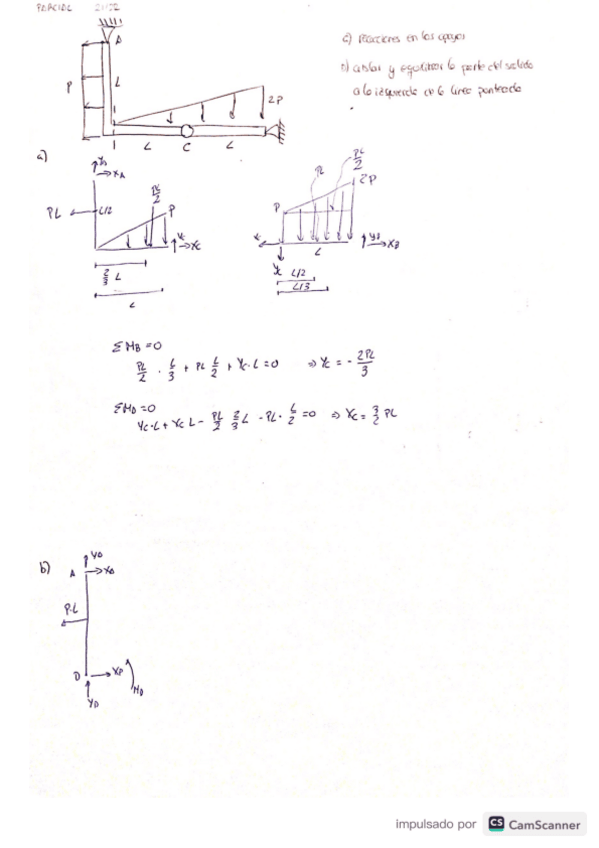 PARCIAL 21/22
a) Reacciones en los apoyos
b) aislar y equilibrar la parte del solido
a la izquierda de la linea punteada
A
P
L
2P
L C L
a)
YA
XA
PL
L/2
PL/2
P
YC
XC
2/3 L
L
PL
PL/2
P
2P
YB
XB
L
YC
L/2
L/3
ΣMB=0
PL/2 · L/3 + PL L/2 + YC·L=0 ⇒ YC = - 2PL/3
YC·L + XC L - PL/2 2/3 L - PL· L/2 =0 ⇒ XC = 3/2 PL
b)
A
P·L
D
XD
YD
MD
impulsado por CS CamScanner